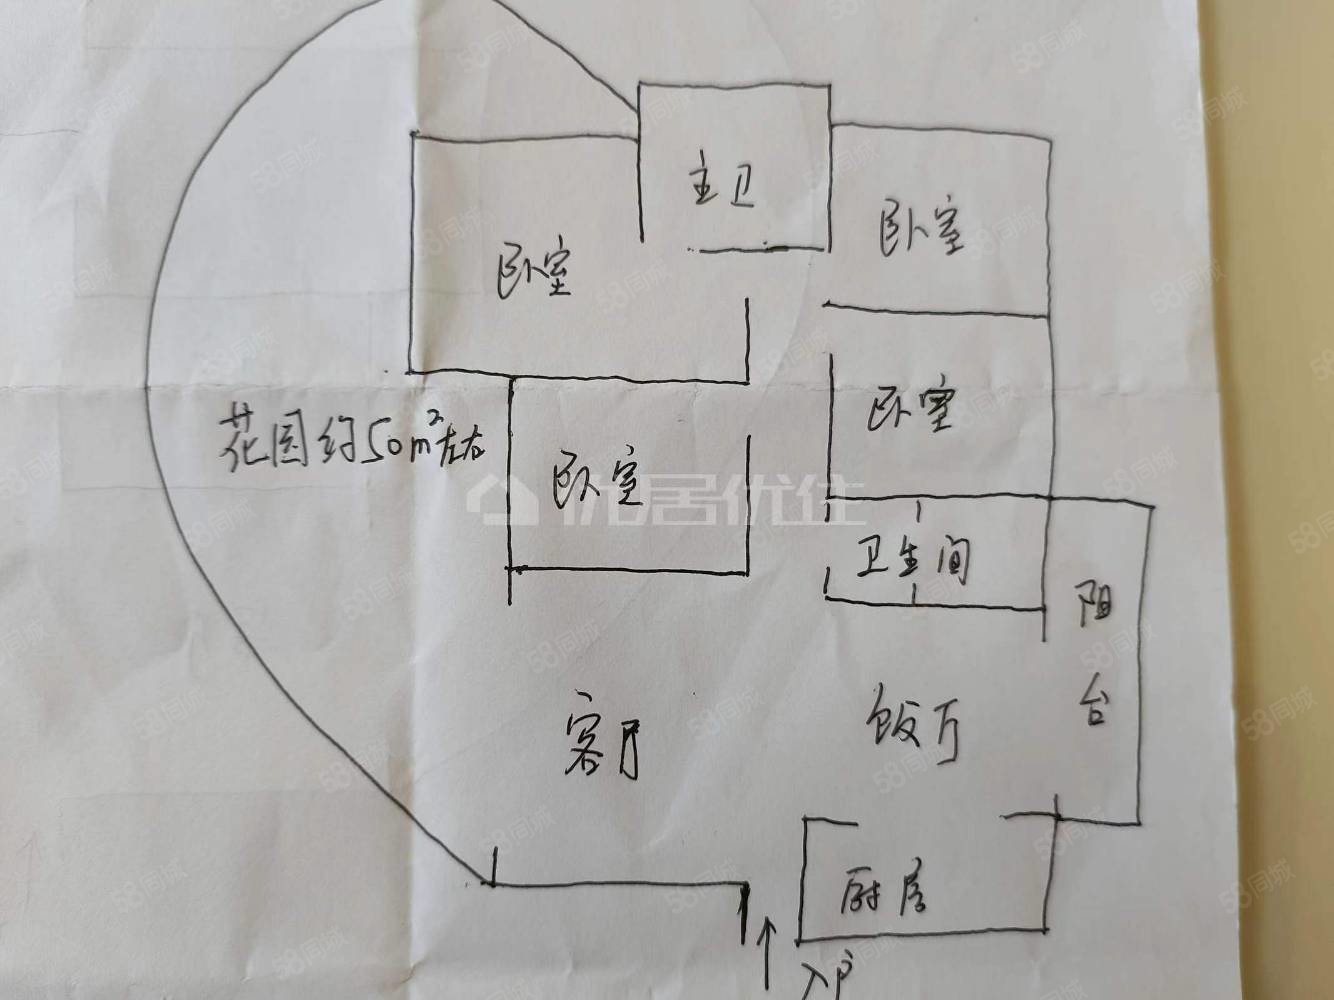 主卫
卧室
卧室
卧室
花园约50m²左右
卧室
卫生间
阳台
客厅
饭厅
厨房
入户
优居优住
58同城